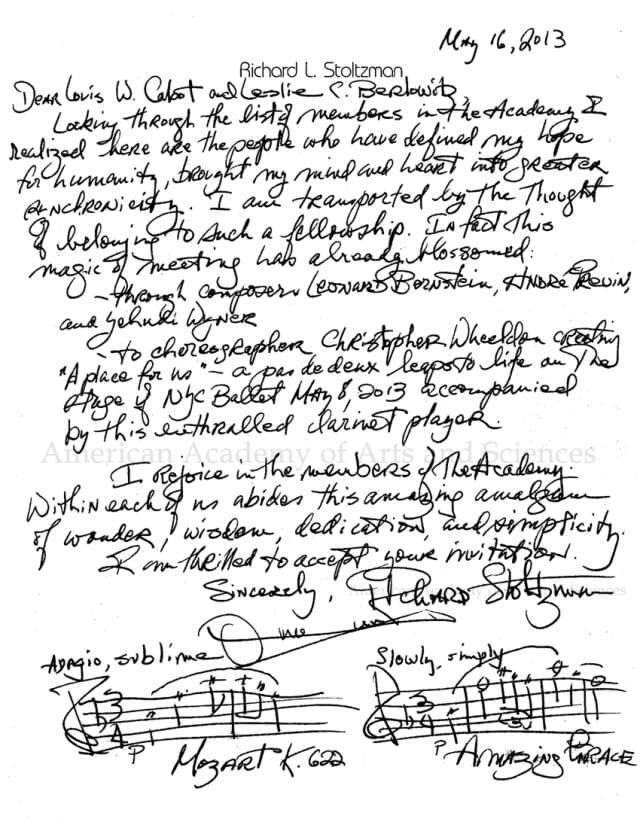 May 16, 2013
Richard L. Stoltzman
Dear Louis W. Cabot and Leslie C. Berlowitz,
Looking through the list of members in the Academy I
realized here are the people who have defined my hope
for humanity, brought my mind and heart into greater
synchronicity. I am transported by the thought
of belonging to such a fellowship. In fact this
magic of meeting has already blossomed:
- through composers Leonard Bernstein, André Previn,
and Yehudi Wyner
- to choreographer Christopher Wheeldon creating
"A place for us" - a pas de deux leaps to life on the
stage of NYC Ballet May 8, 2013 accompanied
by this enthralled clarinet player
American Academy of Arts and Sciences
I rejoice in the members of The Academy.
Within each of us abides this amazing amalgam
of wonder, wisdom, dedication, and simplicity.
I am thrilled to accept your invitation.
Sincerely, Richard Stoltzman
Adagio, sublime
Slowly, simply
3 4
3 4
P
P
Mozart K. 622
Amazing Grace